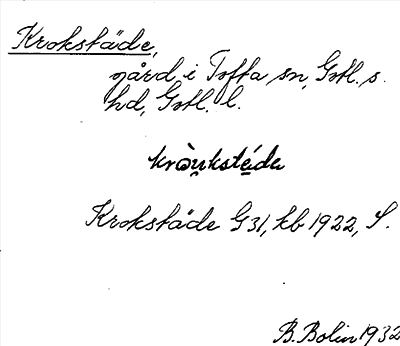 Krokstäde,
gård i Tofta sn, Gotl. s.
hd, Gotl. l.
kròu̯kstéde
Krokstäde G31, kb 1922, S.
B. Bolin 1932